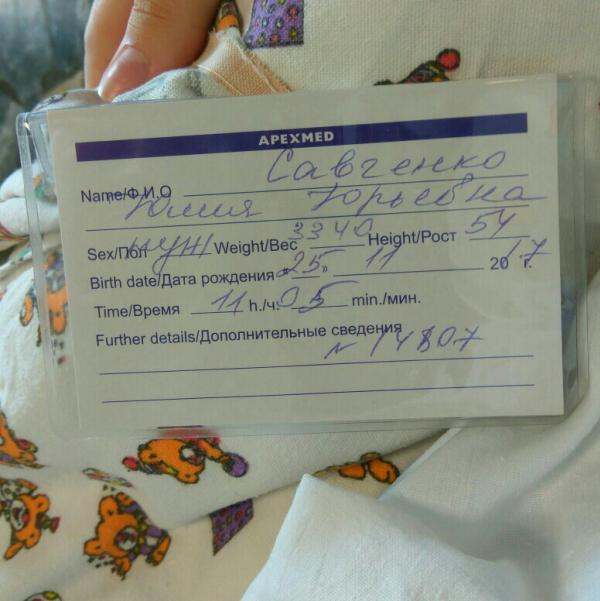 APEXMED
Name/Ф.И.О Савченко
Юлия Юрьевна
Sex/Пол муж Weight/Вес 3340 Height/Рост 54
Birth date/Дата рождения «25» 11 2017 г.
Time/Время 11 h./ч. 05 min./мин.
Further details/Дополнительные сведения
N 14807